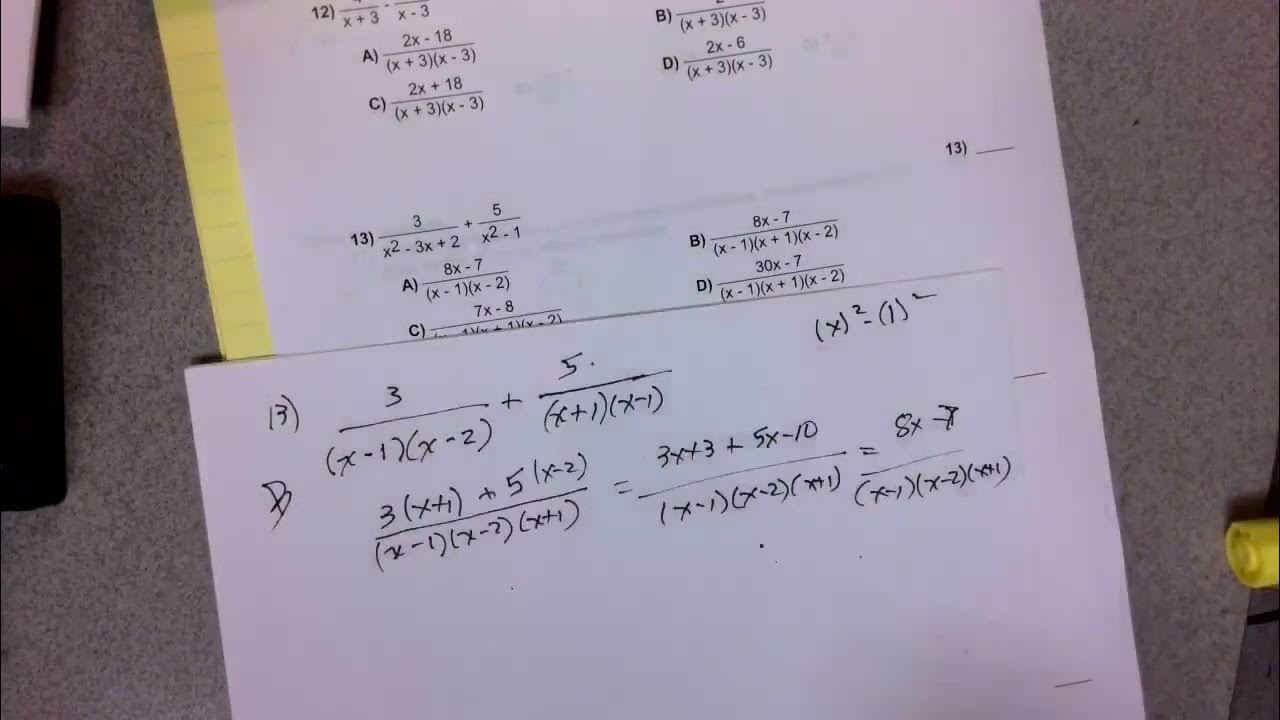 12) 4/(x + 3) - /(x - 3)
A) (2x - 18)/((x + 3)(x - 3))
B) 2/((x + 3)(x - 3))
C) (2x + 18)/((x + 3)(x - 3))
D) (2x - 6)/((x + 3)(x - 3))
13) ____
13) 3/(x² - 3x + 2) + 5/(x² - 1)
A) (8x - 7)/((x - 1)(x - 2))
B) (8x - 7)/((x - 1)(x + 1)(x - 2))
C) (7x - 8)/((x - 1)(x + 1)(x - 2))
D) (30x - 7)/((x - 1)(x + 1)(x - 2))
(x)² - (1)²
13) 3/((x-1)(x-2)) + 5/((x+1)(x-1))
(3(x+1) + 5(x-2))/((x-1)(x-2)(x+1)) = (3x+3 + 5x-10)/((x-1)(x-2)(x+1)) = (8x - 7)/((x-1)(x-2)(x+1))